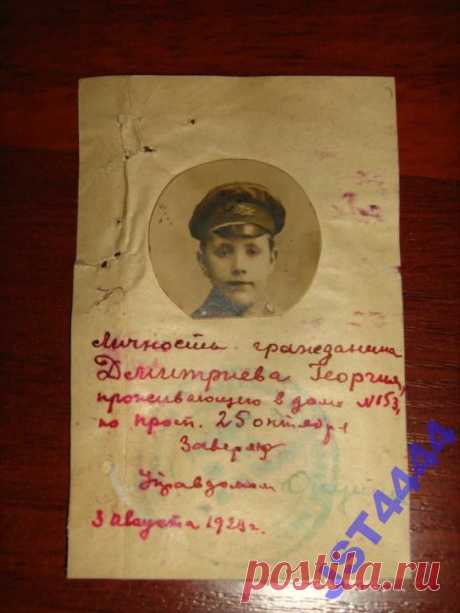 Личность гражданина
Дмитриева Георгия,
проживающего в доме №153,
по просп. 25 октября
Заверяю
Управдомом
3 Августа 1924г.
JST4444
postila.ru